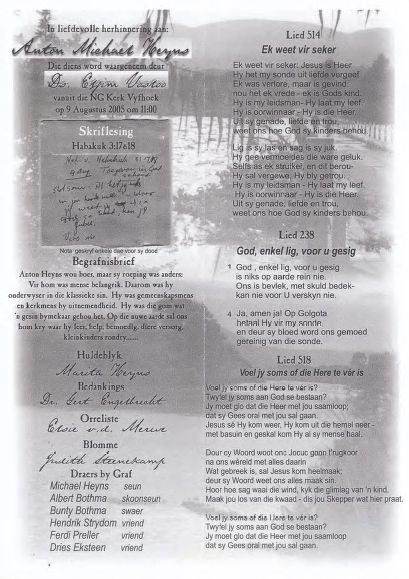 In liefdevolle herhinnering aan:
Anton Michael Heyns
Die diens word waargeneem deur
Ds. Etzim Vastoo
vanuit die NG Kerk Vyfhoek
op 9 Augustus 2005 om 11:00
Skriflesing
Habakuk 3:17e18
Nota: geskryf enkele dae voor sy dood
Begrafnisbrief
Anton Heyns wou boer, maar sy toeping was anders:
Vir hom was mense belangrik. Daarom was hy
onderwyser in die klassieke sin. Hy was gemeenskapsmens
en kerkmens by uitnemendheid. Hy was die gom wat
'n gesin bymekaar gehou het. Op die nuwe aarde sal ons
hom kry waar hy leer, help, bemoedig, diere versorg,
kleinkinders rondry......
Huldeblyk
Mareta Heyns
Bedankings
Dr. Gert Engelbrecht
Orreliste
Elsie v.d. Merwe
Blomme
Judith Steenekamp
Draers by Graf
Michael Heyns seun
Albert Bothma skoonseun
Bunty Bothma swaer
Hendrik Strydom vriend
Ferdi Preller vriend
Dries Eksteen vriend
Lied 514
Ek weet vir seker
Ek weet vir seker: Jesus is Heer
Hy het my sonde uit liefde vergeef
Ek was verlore, maar is gevind:
nou het ek vrede - ek is Gods kind.
Hy is my leidsman - Hy laat my leef.
Hy is oorwinnaar - Hy is die Heer.
Uit sy genade, liefde en trou,
weet ons hoe God sy kinders behou.
Lig is sy las en sag is sy juk.
Hy gee vermoeides die ware geluk.
Selfs as ek struikel, en dit berou-
Hy sal vergewe, Hy bly getrou.
Hy is my leidsman - Hy laat my leef.
Hy is oorwinnaar - Hy is die Heer.
Uit sy genade, liefde en trou,
weet ons hoe God sy kinders behou.
Lied 238
God, enkel lig, voor u gesig
1 God, enkel lig, voor u gesig
is niks op aarde rein nie.
Ons is bevlek, met skuld bedek-
kan nie voor U verskyn nie.
4 Ja, amen ja! Op Golgota
betaal Hy vir my sonde,
en deur sy bloed word ons gemoed
gereinig van die sonde.
Lied 518
Voel jy soms of die Here te vêr is
Voel jy soms of die Here te vêr is?
Twyfel jy soms aan God se bestaan?
Jy moet glo dat die Heer met jou saamloop;
dat sy Gees oral met jou sal gaan.
Jesus sê Hy kom weer, Hy kom uit die hemel neer -
met basuin en geskal kom Hy al sy mense haal.
Dour oy Woord woot ono Jocuc goop t'rugkoor
na ons wêreld met alles daarin
Wat gebreek is, sal Jesus kom heelmaak;
deur sy Woord weet ons alles maak sin.
Hoor hoe sag waai die wind, kyk die glimlag van 'n kind.
Maak jou los van die kwaad - dis jou Skepper wat hier praat.
Voel jy soms of die Here te vêr is?
Twyfel jy soms aan God se bestaan?
Jy moet glo dat die Heer met jou saamloop
dat sy Gees oral met jou sal gaan.